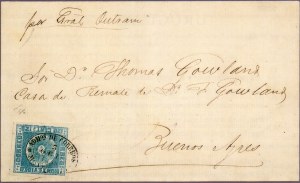 por Gral. Outram
Sor. Dn. Thomas Gowland
Casa de Remate de Dn. T. Gowland
Buenos Ayres